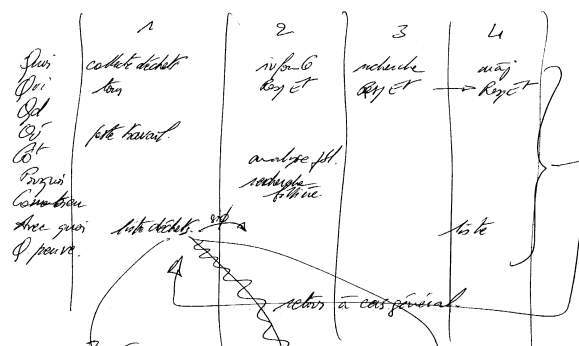 1 2 3 4
Quoi collecte déchets info G recherche màj
Qui tous Resp Et Resp Et → Resp Et
Qd
Où poste travail.
Côt analyse
Pourquoi recherche filière
Combien
Avec quoi liste déchets. liste
Q peuve.
retour à cas général.